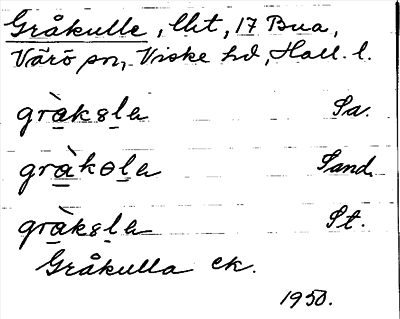 Gråkulle, lht, 17 Bua,
Värö sn, Viske hd, Hall. l.
gràksla Sa.
gràkola Sand.
gràksla St.
Gråkulla ek.
1950.